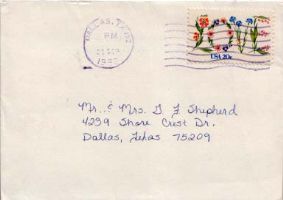 DALLAS, TX
P.M.
1982
USA 20c
Mr. & Mrs. G F Shepherd
4239 Shore Crest Dr.
Dallas, Texas
75209